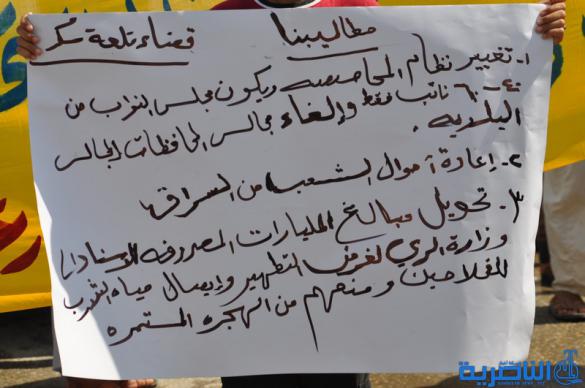 مطاليبنا
قضاء تلعة سكر
١- تغيير نظام المحاصصه ويكون مجلس النواب من
٤٠-٦٠ نائب فقط وإلغاء مجالس المحافظات والمجالس
البلديه.
٢- إعادة أموال الشعب من السراق
٣- تحويل مبالغ المليارات المصروفه
وزارة الري لغرض التطهير وإيصال مياه الشرب
للفلاحين ومنعهم من الهجره المستمره
الناصرية